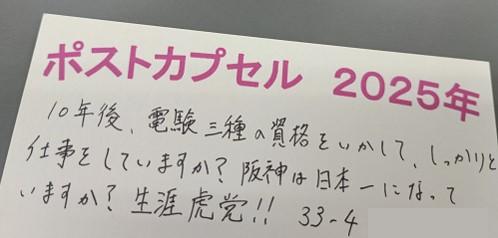 ポストカプセル　2025年
10年後、電験三種の資格をいかして、しっかりと
仕事をしていますか？阪神は日本一になって
いますか？生涯虎党!!　33-4